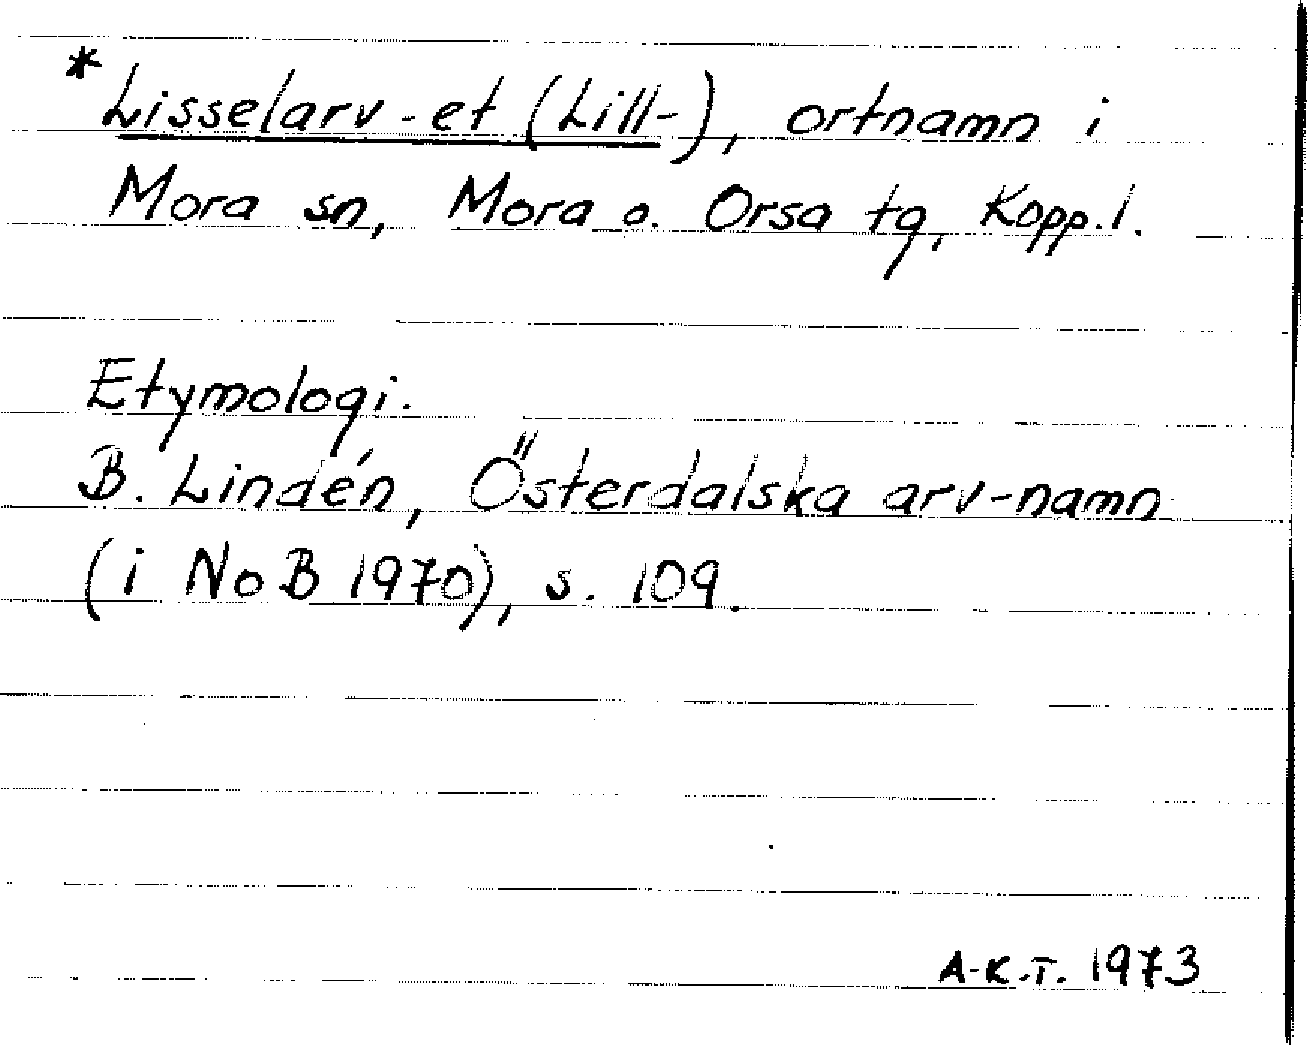 *Lisselarv -et (Lill-), ortnamn i
Mora sn, Mora o. Orsa tg, Kopp. l.
Etymologi.
B. Lindén, Österdalska arv-namn
(i NoB 1970), s. 109.
A-K.T. 1973